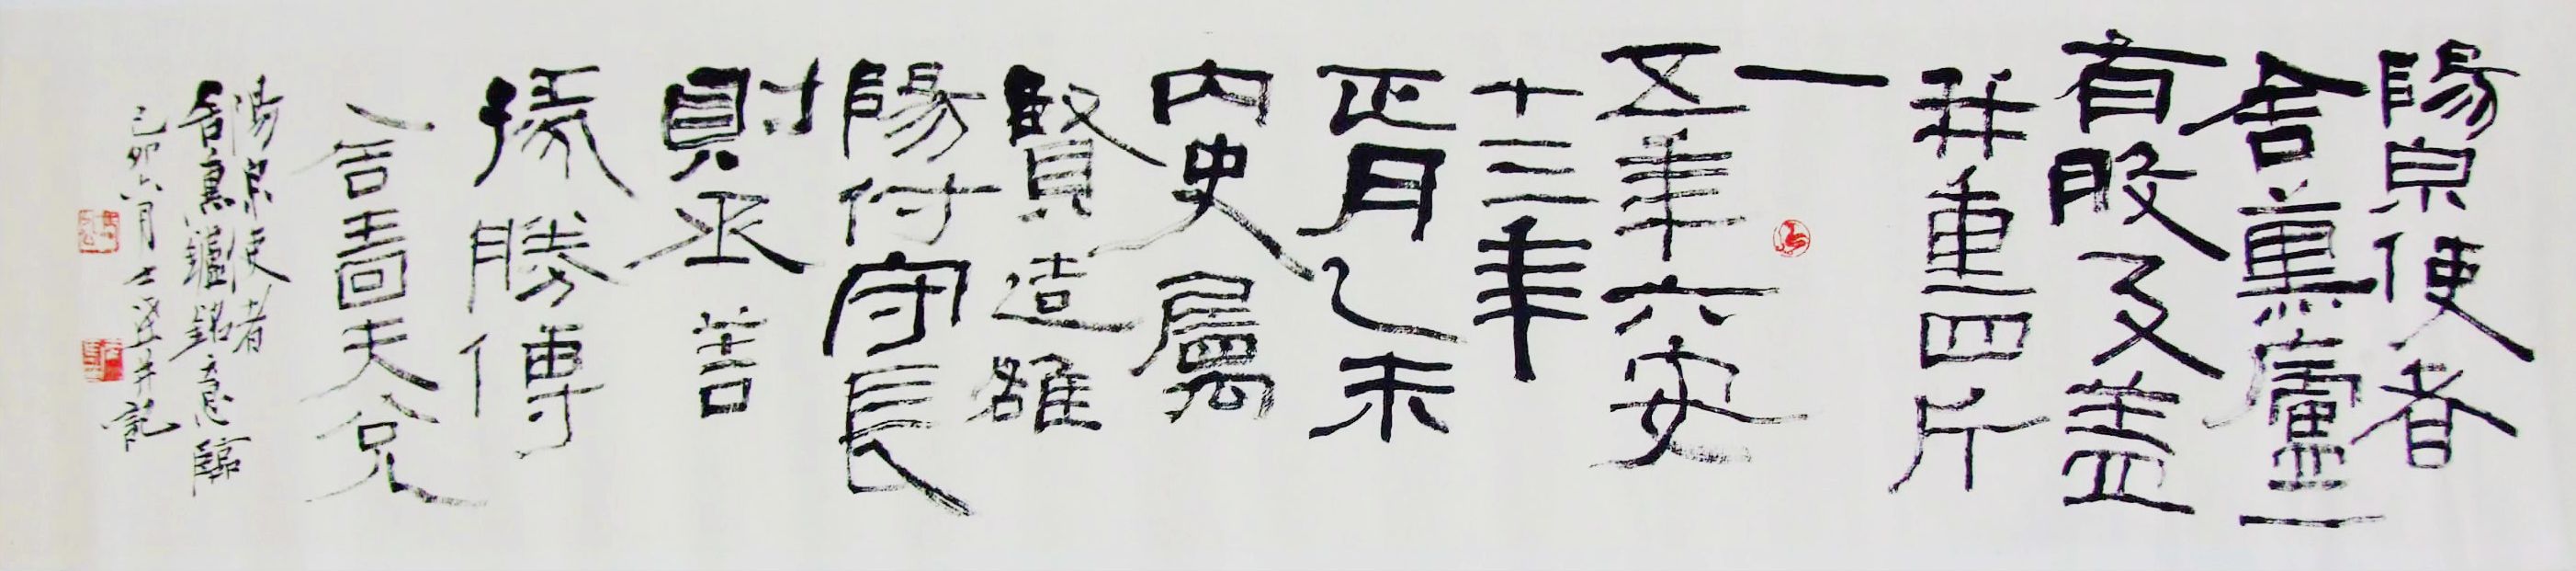 陽泉使者
舍熏盧一
有般及盖
并重四斤
一
五年六安
十三年
正月乙未
内史屬
賢造雒
陽付守長
則丞善
掾勝傳
舍嗇夫兌
陽泉使者
舍熏鑪銘意臨
己卯八月并記